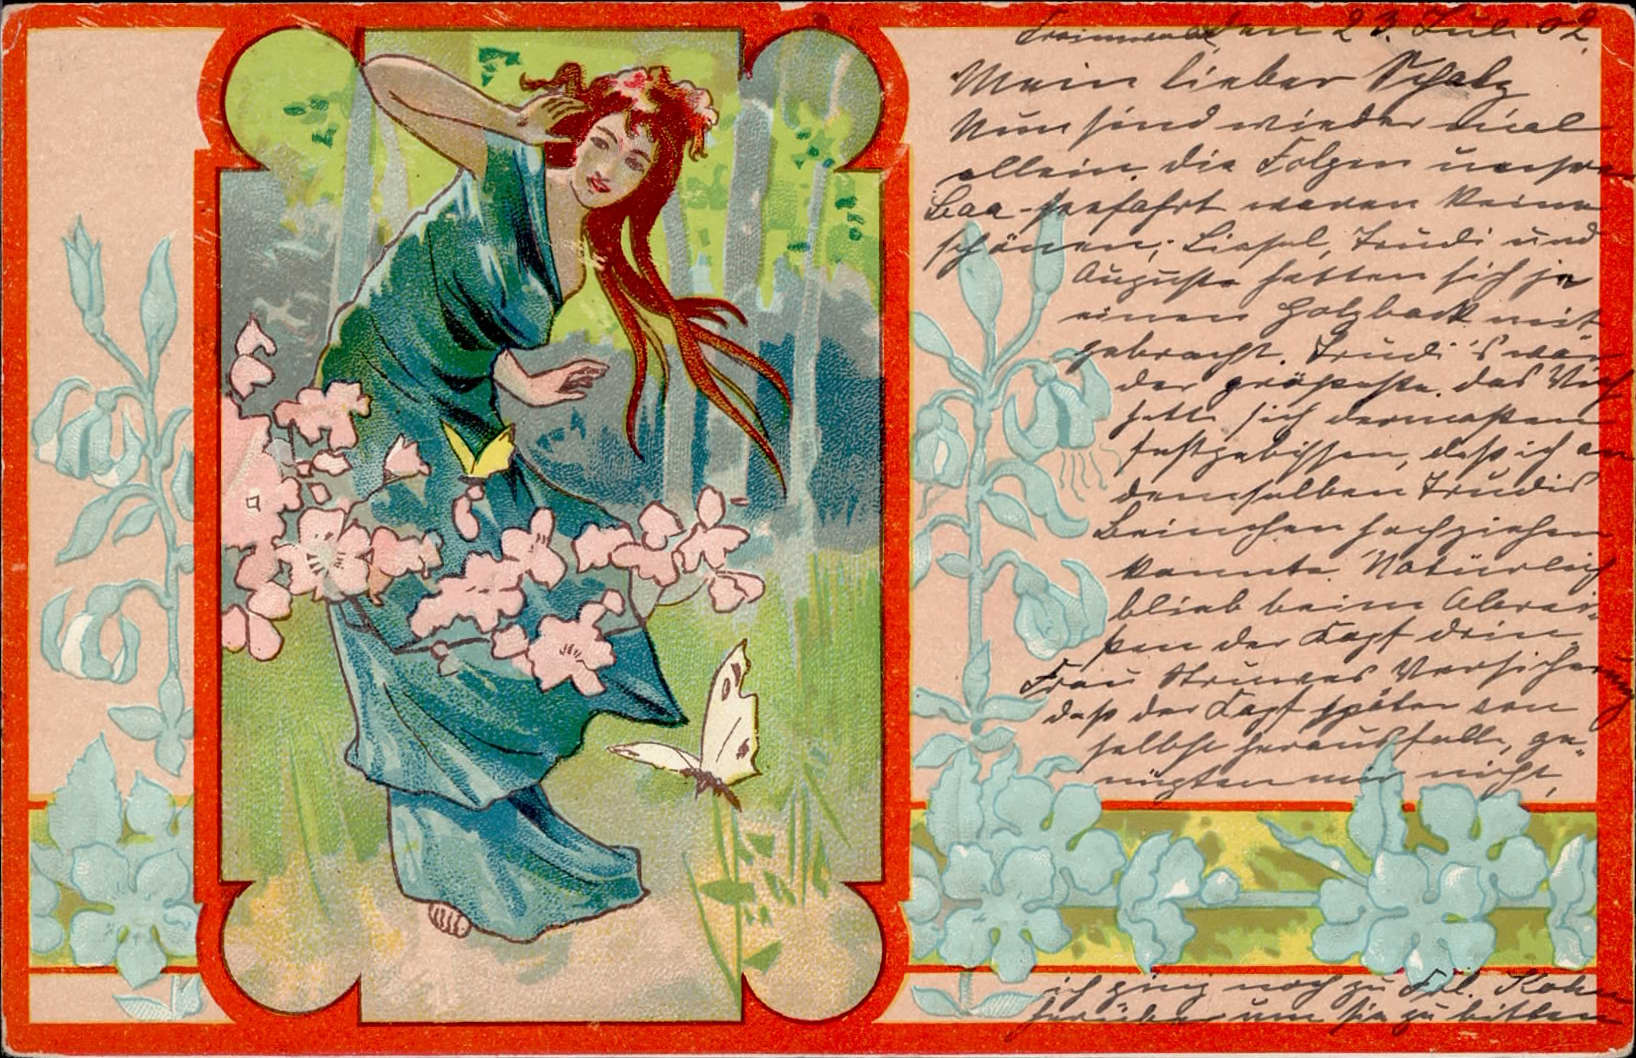 den 23. Juli 02.
Mein lieber Schatz
Nun sind wieder mal
allein. die Folgen unsrer
seefahrt waren keine
schönen; Liesel, Trudi und
Auguste hatten sich je
einen Holzbock mit
gebracht. Trudi's war
der größeste. das Vieh
hatte sich dermaßen
festgebissen, daß ich an
demselben Trudis
Beinchen hochziehen
konnte. Natürlich
blieb beim Abrei-
ßen der Kopf drin
Frau Struves Versicherung
daß der Kopf später von
selbst herausfalle, ge-
nügten mir nicht,
ich ging noch zu Frl.
herüber um sie zu bitten